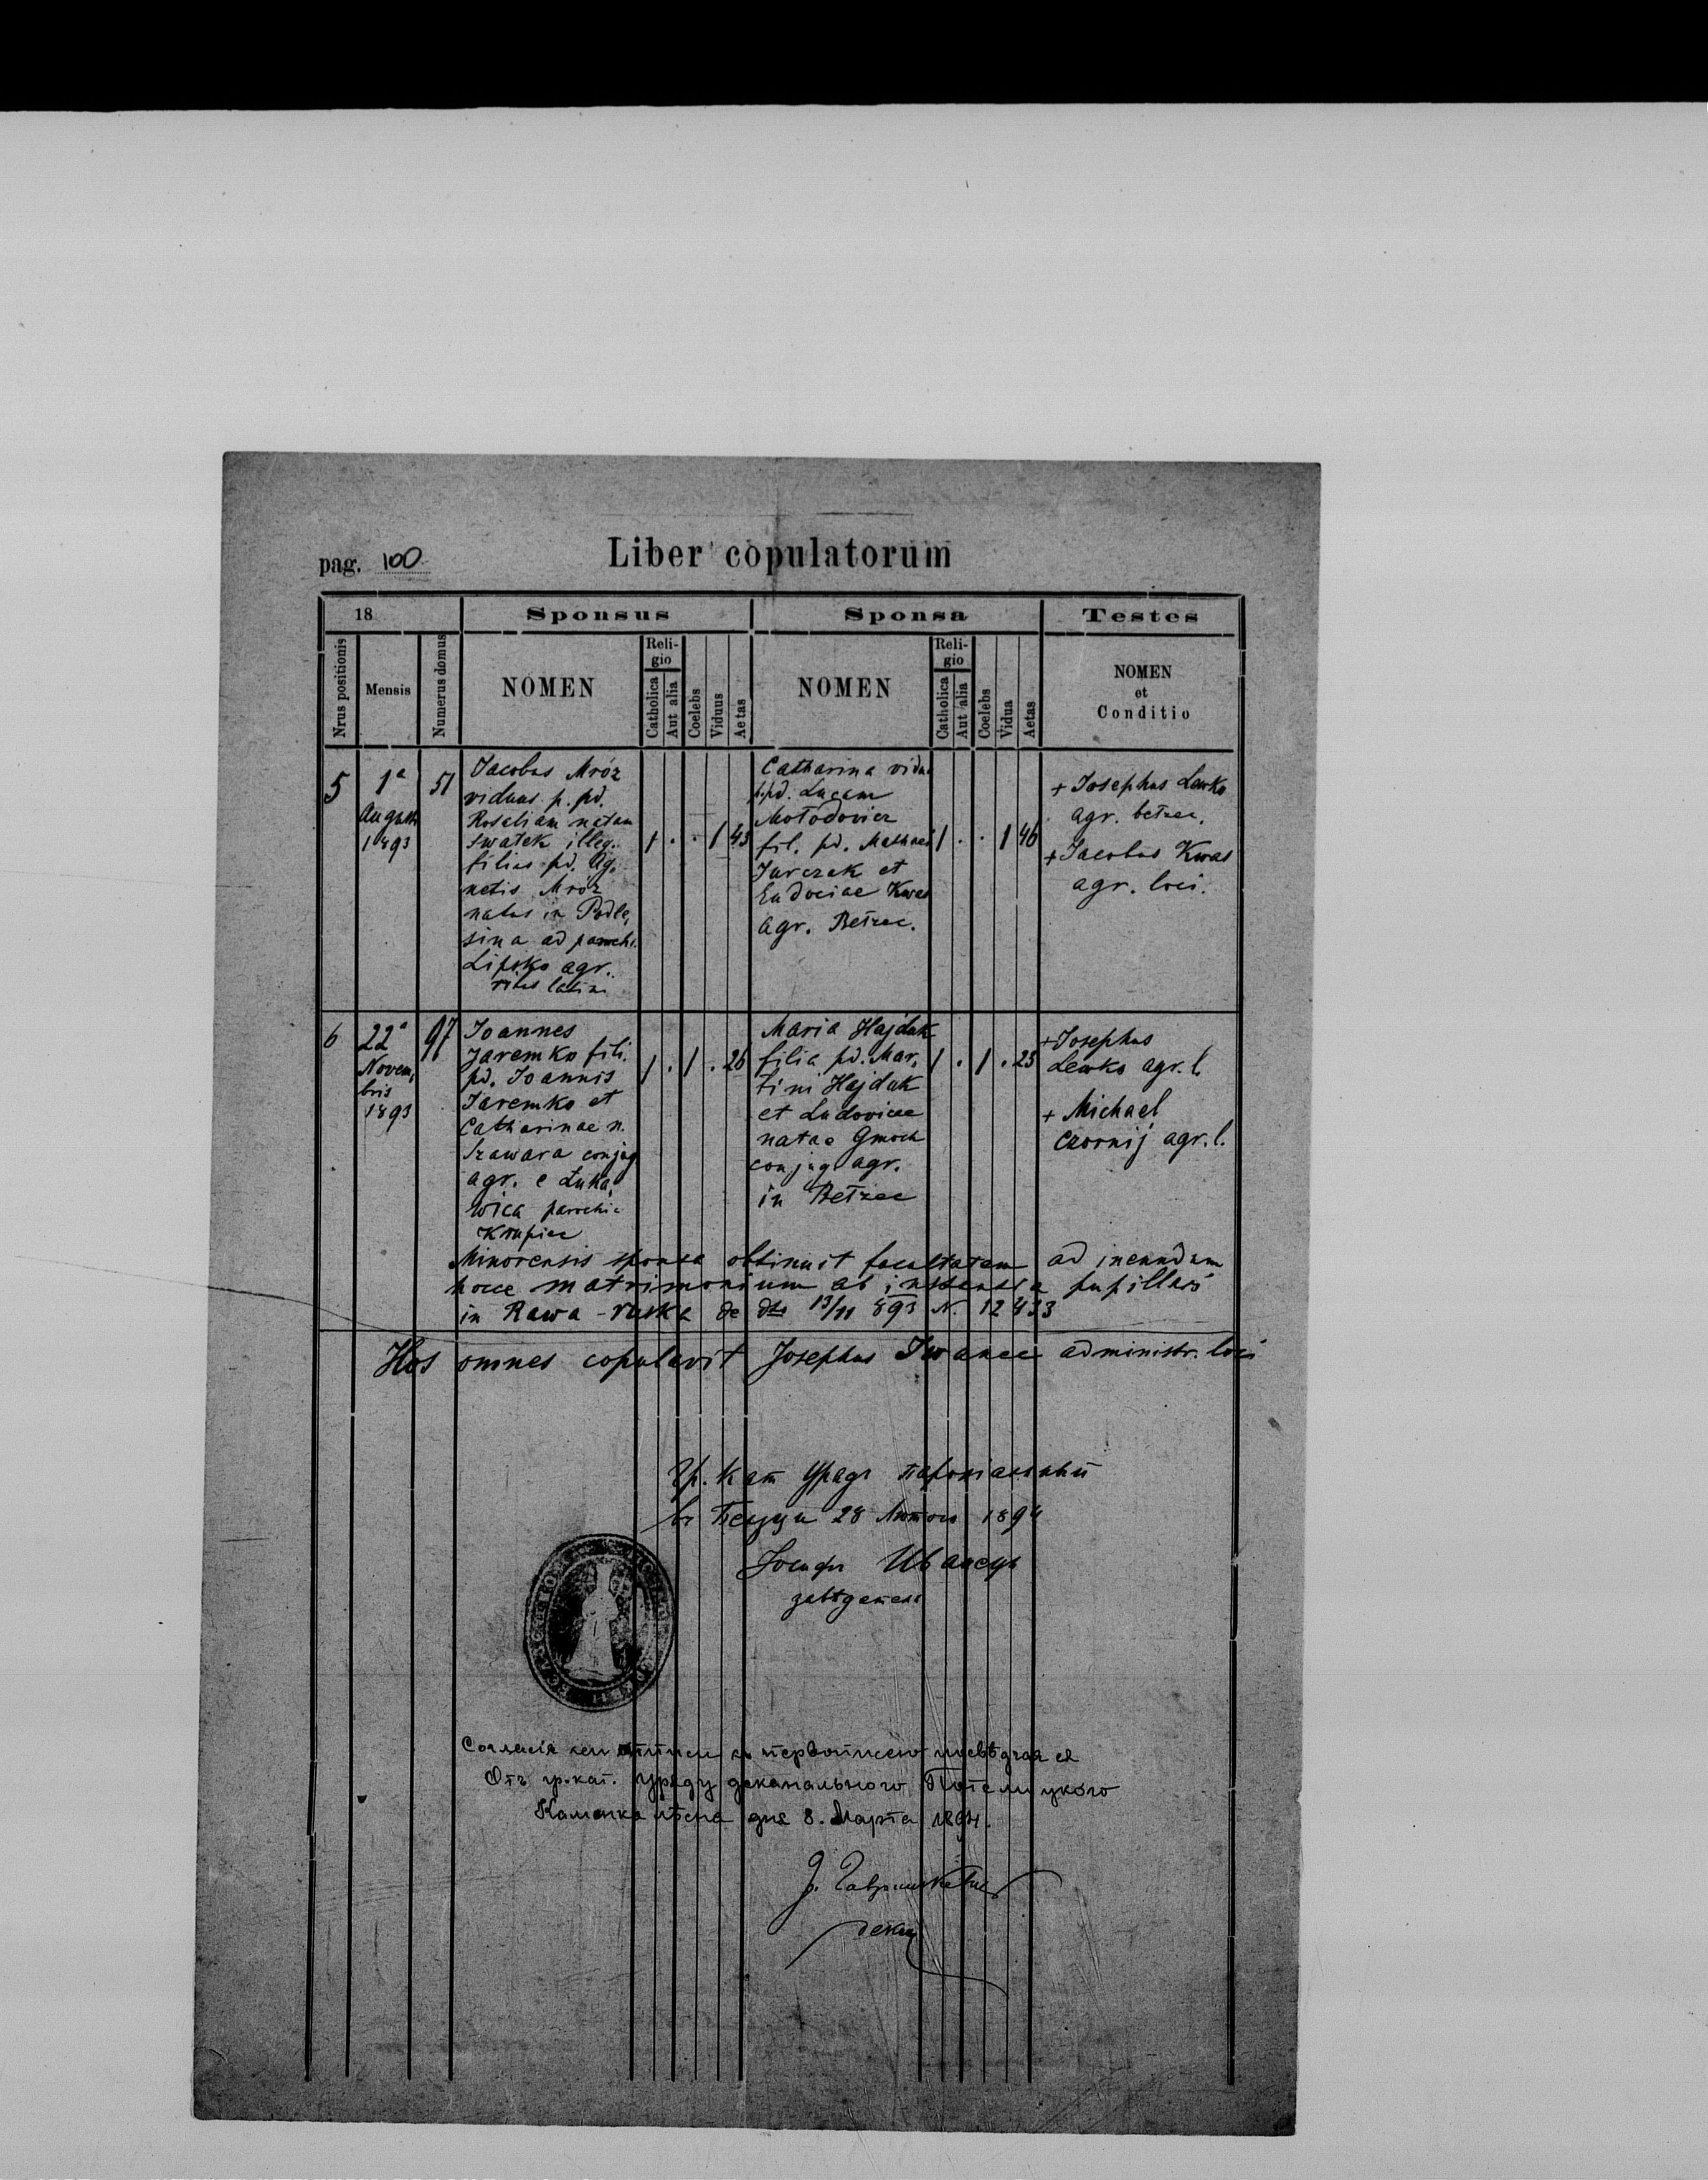 pag. 100
Liber copulatorum
18
Sponsus
Sponsa
Testes
Nrus positionis
Mensis
Numerus domus
NOMEN
Religio
Catholica
Aut alia
Coelebs
Viduus
Aetas
NOMEN
Religio
Catholica
Aut alia
Coelebs
Vidua
Aetas
NOMEN
et
Conditio
5
1a
Augusti
1893
51
Jacobus Mróz
viduus p. pd.
Rosaliam natam
Swatek illeg.
filius pd. Ag,
netis Mróz
natus in Podle,
sina ad paroch.
Lipsko agr.
ritus latini
1 . . 1 43
Catharina vidua
p. pd. Lucam
Mołodovicz
fil. pd. Mathaei
Jurczak et
Eudociae Kwas
agr. Bełzec.
1 . . 1 46
+ Josephus Lewko
agr. bełzec.
+ Jacobus Kwas
agr. loci.
6
22a
Novem,
bris
1893
97
Joannes
Jaremko fili.
pd. Joannis
Jaremko et
Catharinae n.
Szawara conjug
agr. e Łuka,
wica parochie
Krupiec
1 . 1 . 26
Maria Hajduk
filia pd. Mar,
tini Hajduk
et Ludovicae
natae Gmoch
conjug agr.
in Bełzec
1 . 1 . 23
+ Josephus
Lewko agr. l.
+ Michael
Czornij agr. l.
Minorensis sponsa obtinuit facultatem ad ineundum
hocce matrimonium ab instantia pupillari
in Rawa-ruska de dto 13/11 893 N. 12433
Hos omnes copulavit Josephus Iwanec administr. loci
Гр. кат Урядъ парохіальный
въ Белзци 28 Лютого 1894
Іосифъ Иванець
завѣдатель
къ первописею
Отъ гр.-кат. уряду деканального Потелицкого
Каменка лѣсна дня 8. Марта 1894.
декан